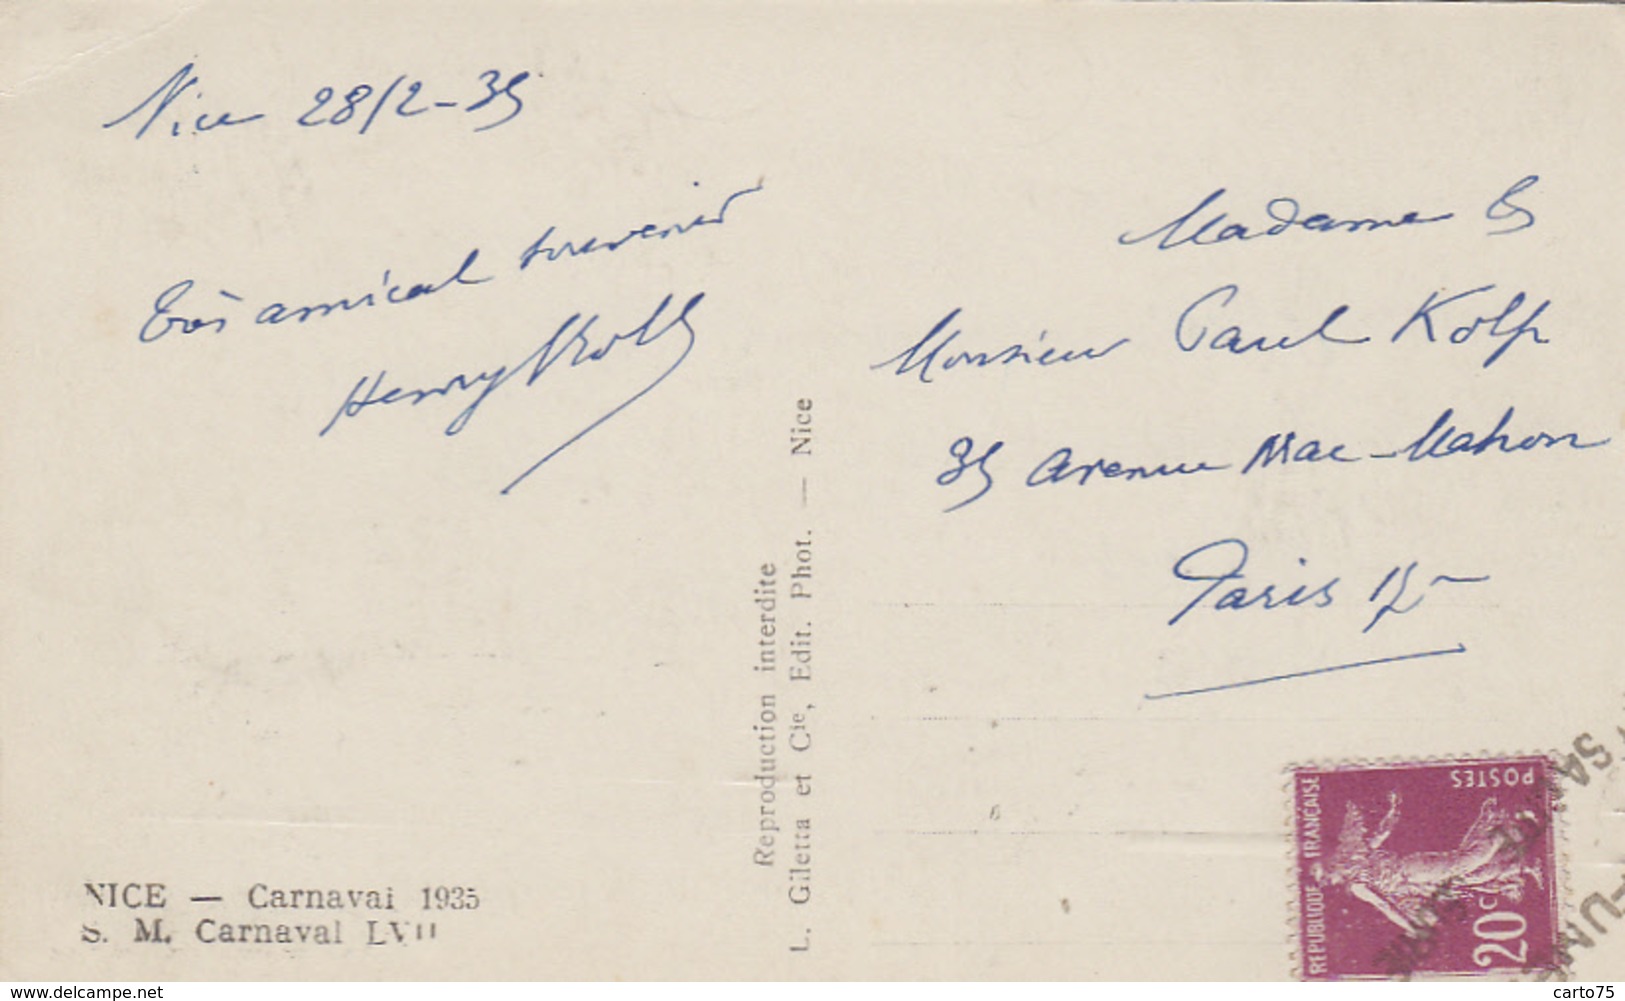 Nice 28/2-35
Très amical souvenir
Henry
Madame &
Monsieur Paul Kolp
35 avenue Mac-Mahon
Paris 17
Reproduction interdite
L. Giletta et Cie, Edit. Phot. — Nice
NICE — Carnaval 1935
S. M. Carnaval LVII
POSTES
REPUBLIQUE FRANÇAISE
20c
www.delcampe.net
carto75